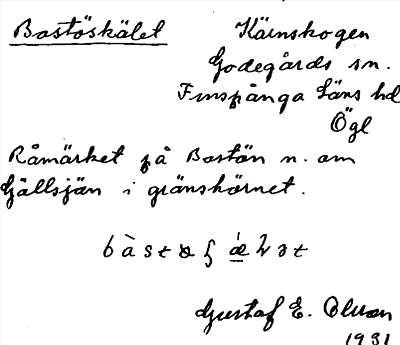 Bastöskälet
Kärnskogen
Godegårds sn.
Finspånga Läns hd
Ögl
Råmärket på Bastön n. om
Gällsjön i gränshörnet.
Gustaf E. Olsson
1931